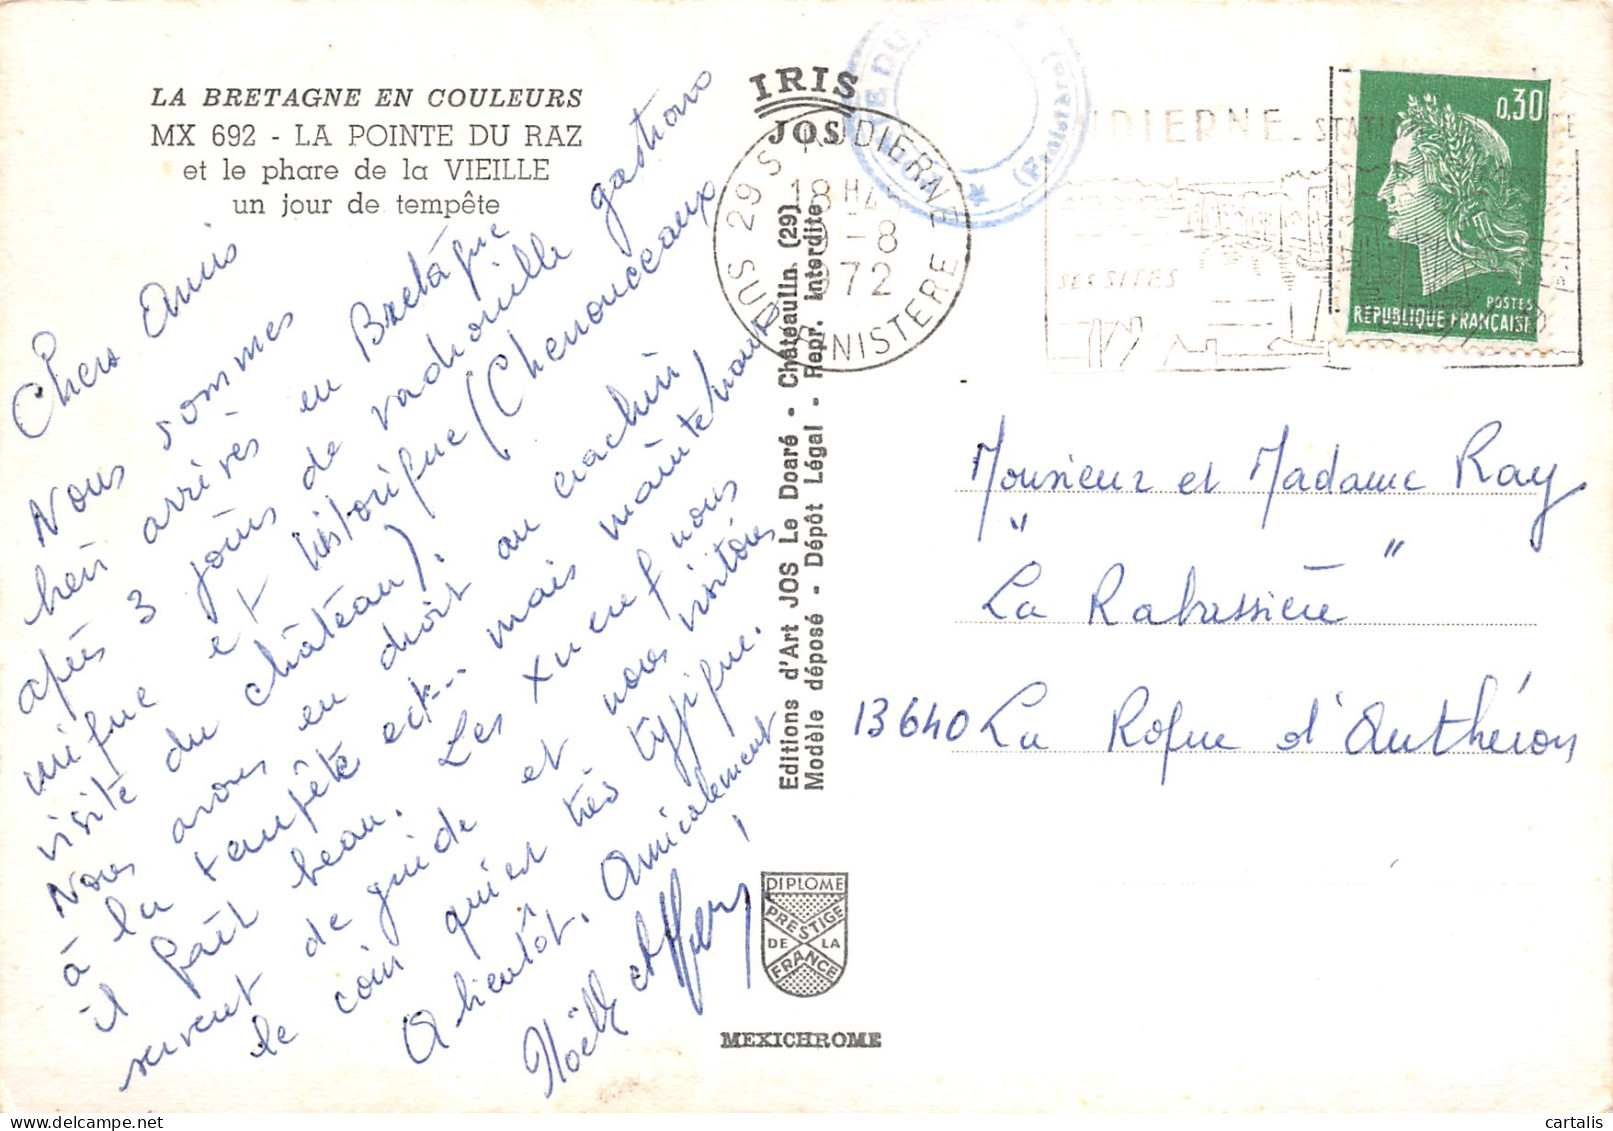 LA BRETAGNE EN COULEURS
MX 692 - LA POINTE DU RAZ
et le phare de la VIEILLE
un jour de tempête
Chers Amis
Nous sommes
bien arrivés en Bretagne
après 3 jours de vadrouille gastrono
mique et historique (Chenonceaux
visite du château).
Nous avons eu droit au crachin
à la tempête ect... mais maintenant
il fait beau. Les Xuereuf nous
servent de guide et nous visitons
le coin qui est très typique.
A bientôt. Amicalement
Noëlle et
IRIS
JOS
Editions d'Art JOS Le Doaré - Châteaulin (29)
Modèle déposé - Dépôt Légal - Repr. Interdite
DIPLOME
PRESTIGE
DE LA
FRANCE
MEXICHROME
29 S AUDIERNE
18 H
-8
1972
SUD FINISTERE
(Finistère)
AUDIERNE STATION
SES SITES
0,30
POSTES
REPUBLIQUE FRANÇAISE
Monsieur et Madame Ray
"La Rabassière"
13640 La Roque d'Anthéron
cartalis